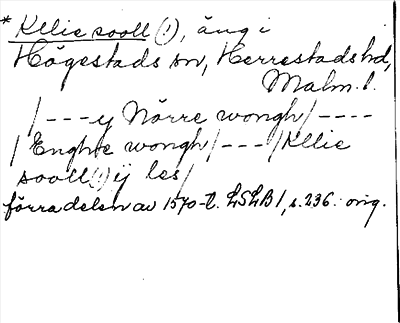 * Kllie sooll (!), äng i
Högestads sn, Herrestads hd,
Malm. l.
/---y Nörre wongh/----
/Enghe wongh/---/Kllie
sooll(!) ij les/
förra delen av 1570-t. LSLB 1, s. 236. orig.